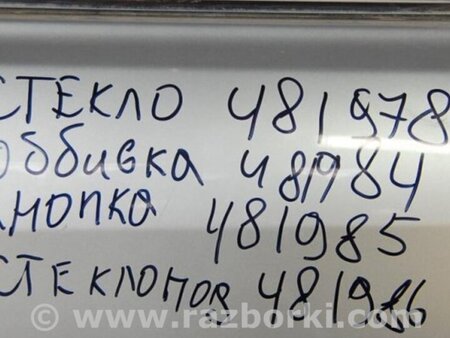 СТЕКЛО 481978
ОББИВКА 481984
КНОПКА 481985
СТЕКЛОПОД 481986
www.razborki.com